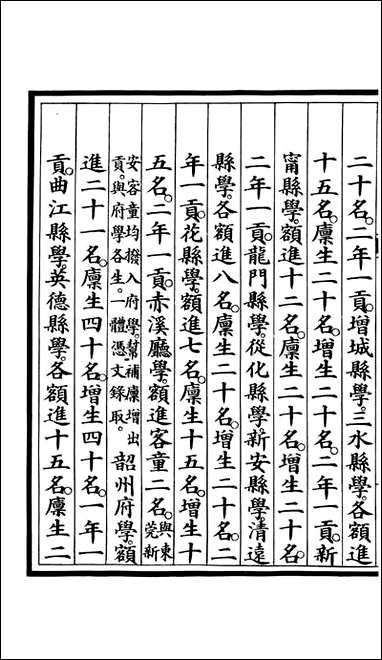 二十名。二年一貢。增城縣學。三水縣學。各額進
十五名。廩生二十名。增生二十名。二年一貢。新
甯縣學。額進十二名。廩生二十名。增生二十名。
二年一貢。龍門縣學。從化縣學。新安縣學。清遠
縣學。各額進八名。廩生二十名。增生二十名。二
年一貢。花縣學。額進七名。廩生十五名。增生十
五名。二年一貢。赤溪廳學。額進客童二名。與東莞新
安客童均撥入府學。幫補廩增出貢。與府學各生。一體憑文錄取。韶州府學。額
進二十一名。廩生四十名。增生四十名。一年一
貢。曲江縣學。英德縣學。各額進十五名。廩生二